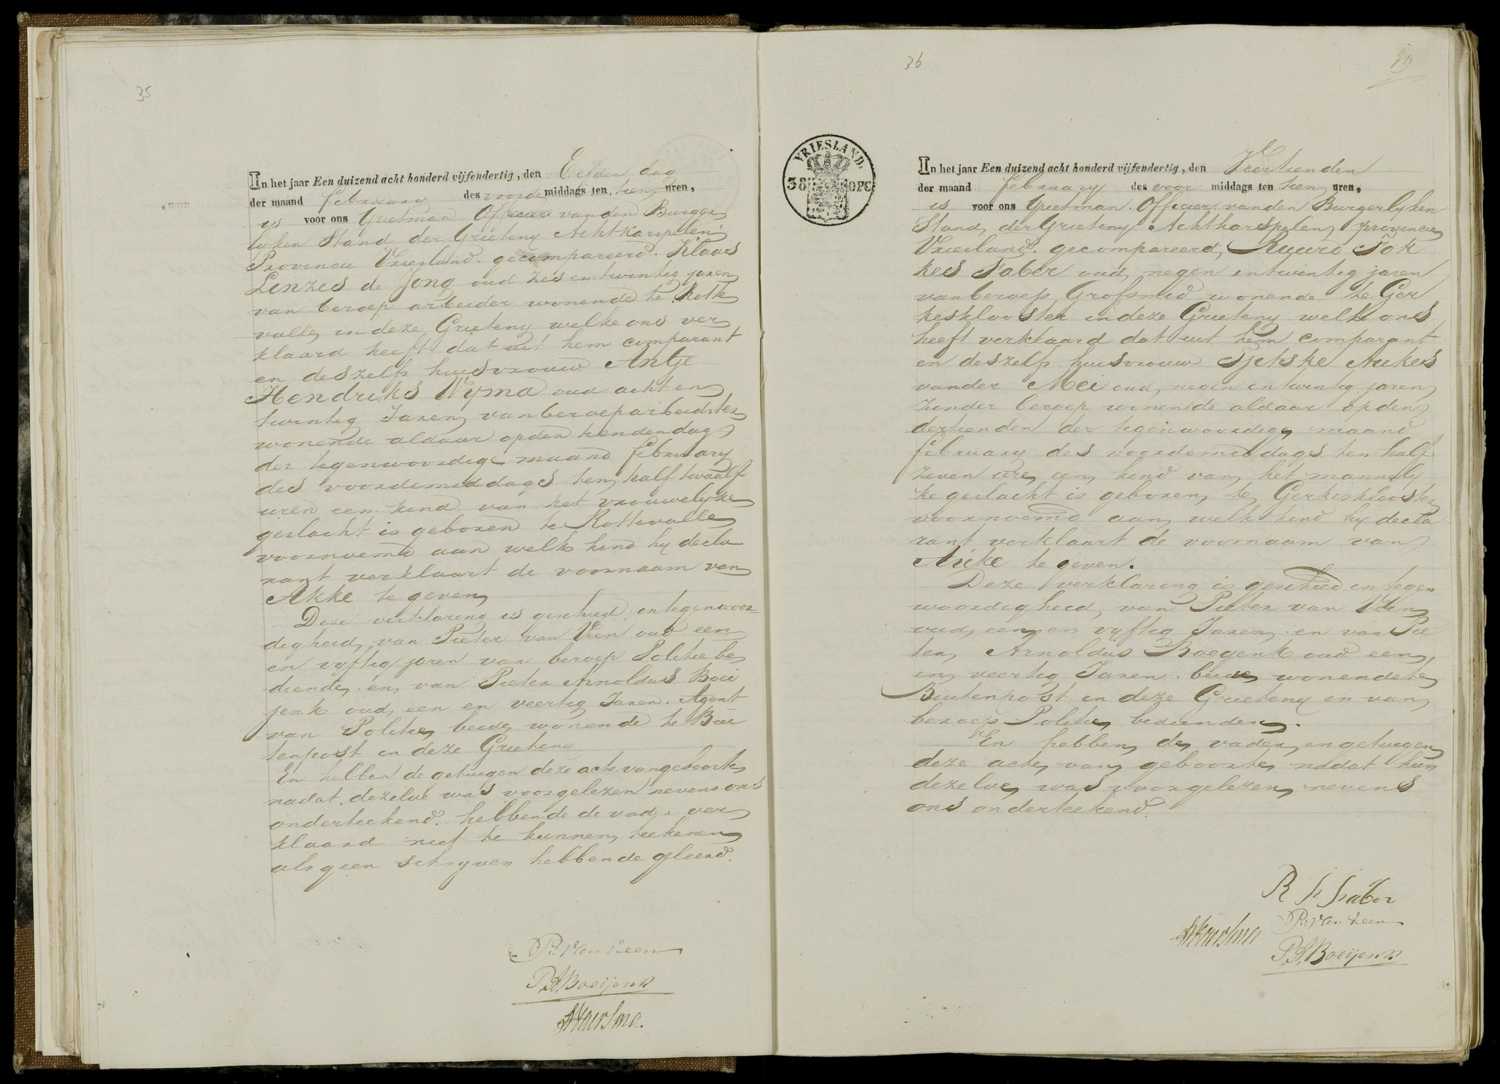 35
In het jaar Een duizend acht honderd vijfendertig, den Elfden dag
der maand february des voorde middags ten tien uren,
is voor ons Grietman Officier van den Burger
lyken Stand der Grieteny Achtkarspelen
Provincie Vriesland gecompareerd Klaas
Lenzes de Jong oud zes en twintig jaren
van beroep arbeider wonende te Rotte
valle, in deze Grieteny welke ons ver
klaard heeft dat uit hem comparant
en deszelfs huisvrouw Antje
Hendriks Wyma oud acht en
twintig Jaren, van beroep arbeidster
wonende aldaar op den tienden dag
der tegenwoordige maand february
des voordemiddags ten half twaalf
uren een kind van het vrouwelyke
geslacht is geboren te Rottevalle
voornoemd aan welk kind hy decla
rant verklaart de voornaam van
Akke te geven
Deze verklaring is geschied in tegenwoor
digheid, van Pieter van Veen oud een
en vyftig jaren van beroep Politie be
diende, en van Pieter Arnoldus Boei
jenk oud, een en veertig Jaren, Agent
van Politie, beide wonende te Bui
tenpost in deze Grieteny
En hebben de getuigen deze acte van geboorte
nadat dezelve was voorgelezen nevens ons
onderteekend. hebbende de vader ver
klaard niet te kunnen teekenen
als geen schryven hebbende geleerd.
P. van Veen
P. A. Boeijenk
36
VRIESLAND.
38 OPC
In het jaar Een duizend acht honderd vijfendertig, den Veertienden
der maand february des voor middags ten tien uren,
is voor ons Grietman Officier van den Burgerlyken
Stand, der Grieteny Achtkarspelen, provincie
Vriesland gecompareerd, Ruurd Fok
kes Faber oud, negen en twintig jaren
van beroep, Grofsmid wonende te Ger
kesklooster in deze Grieteny welke ons
heeft verklaard dat uit hem comparant
en deszelfs huisvrouw Tjetske Aukes
van der Mei oud, negen en twintig jaren,
zonder beroep wonende aldaar op den
dertienden der tegenwoordige maand
february des voordemiddags ten half
zeven ure een kind van het mannely
ke geslacht is geboren, te Gerkesklooster
voornoemd aan welk kind hy decla
rant verklaart de voornaam van
Auke te geven.
Deze verklaring is geschied in tegen
woordigheid, van Pieter van Veen
oud, een en vyftig Jaren en van Pie
ter Arnoldus Boeijenk oud een
en veertig Jaren beide wonende te
Buitenpost in deze Grieteny en van
beroep Politie bedienden.
En hebben de vader en getuigen
deze acte van geboorte nadat hun
dezelve was voorgelezen nevens
ons onderteekend.
R F Faber
P. van Veen
P. A. Boeijenk